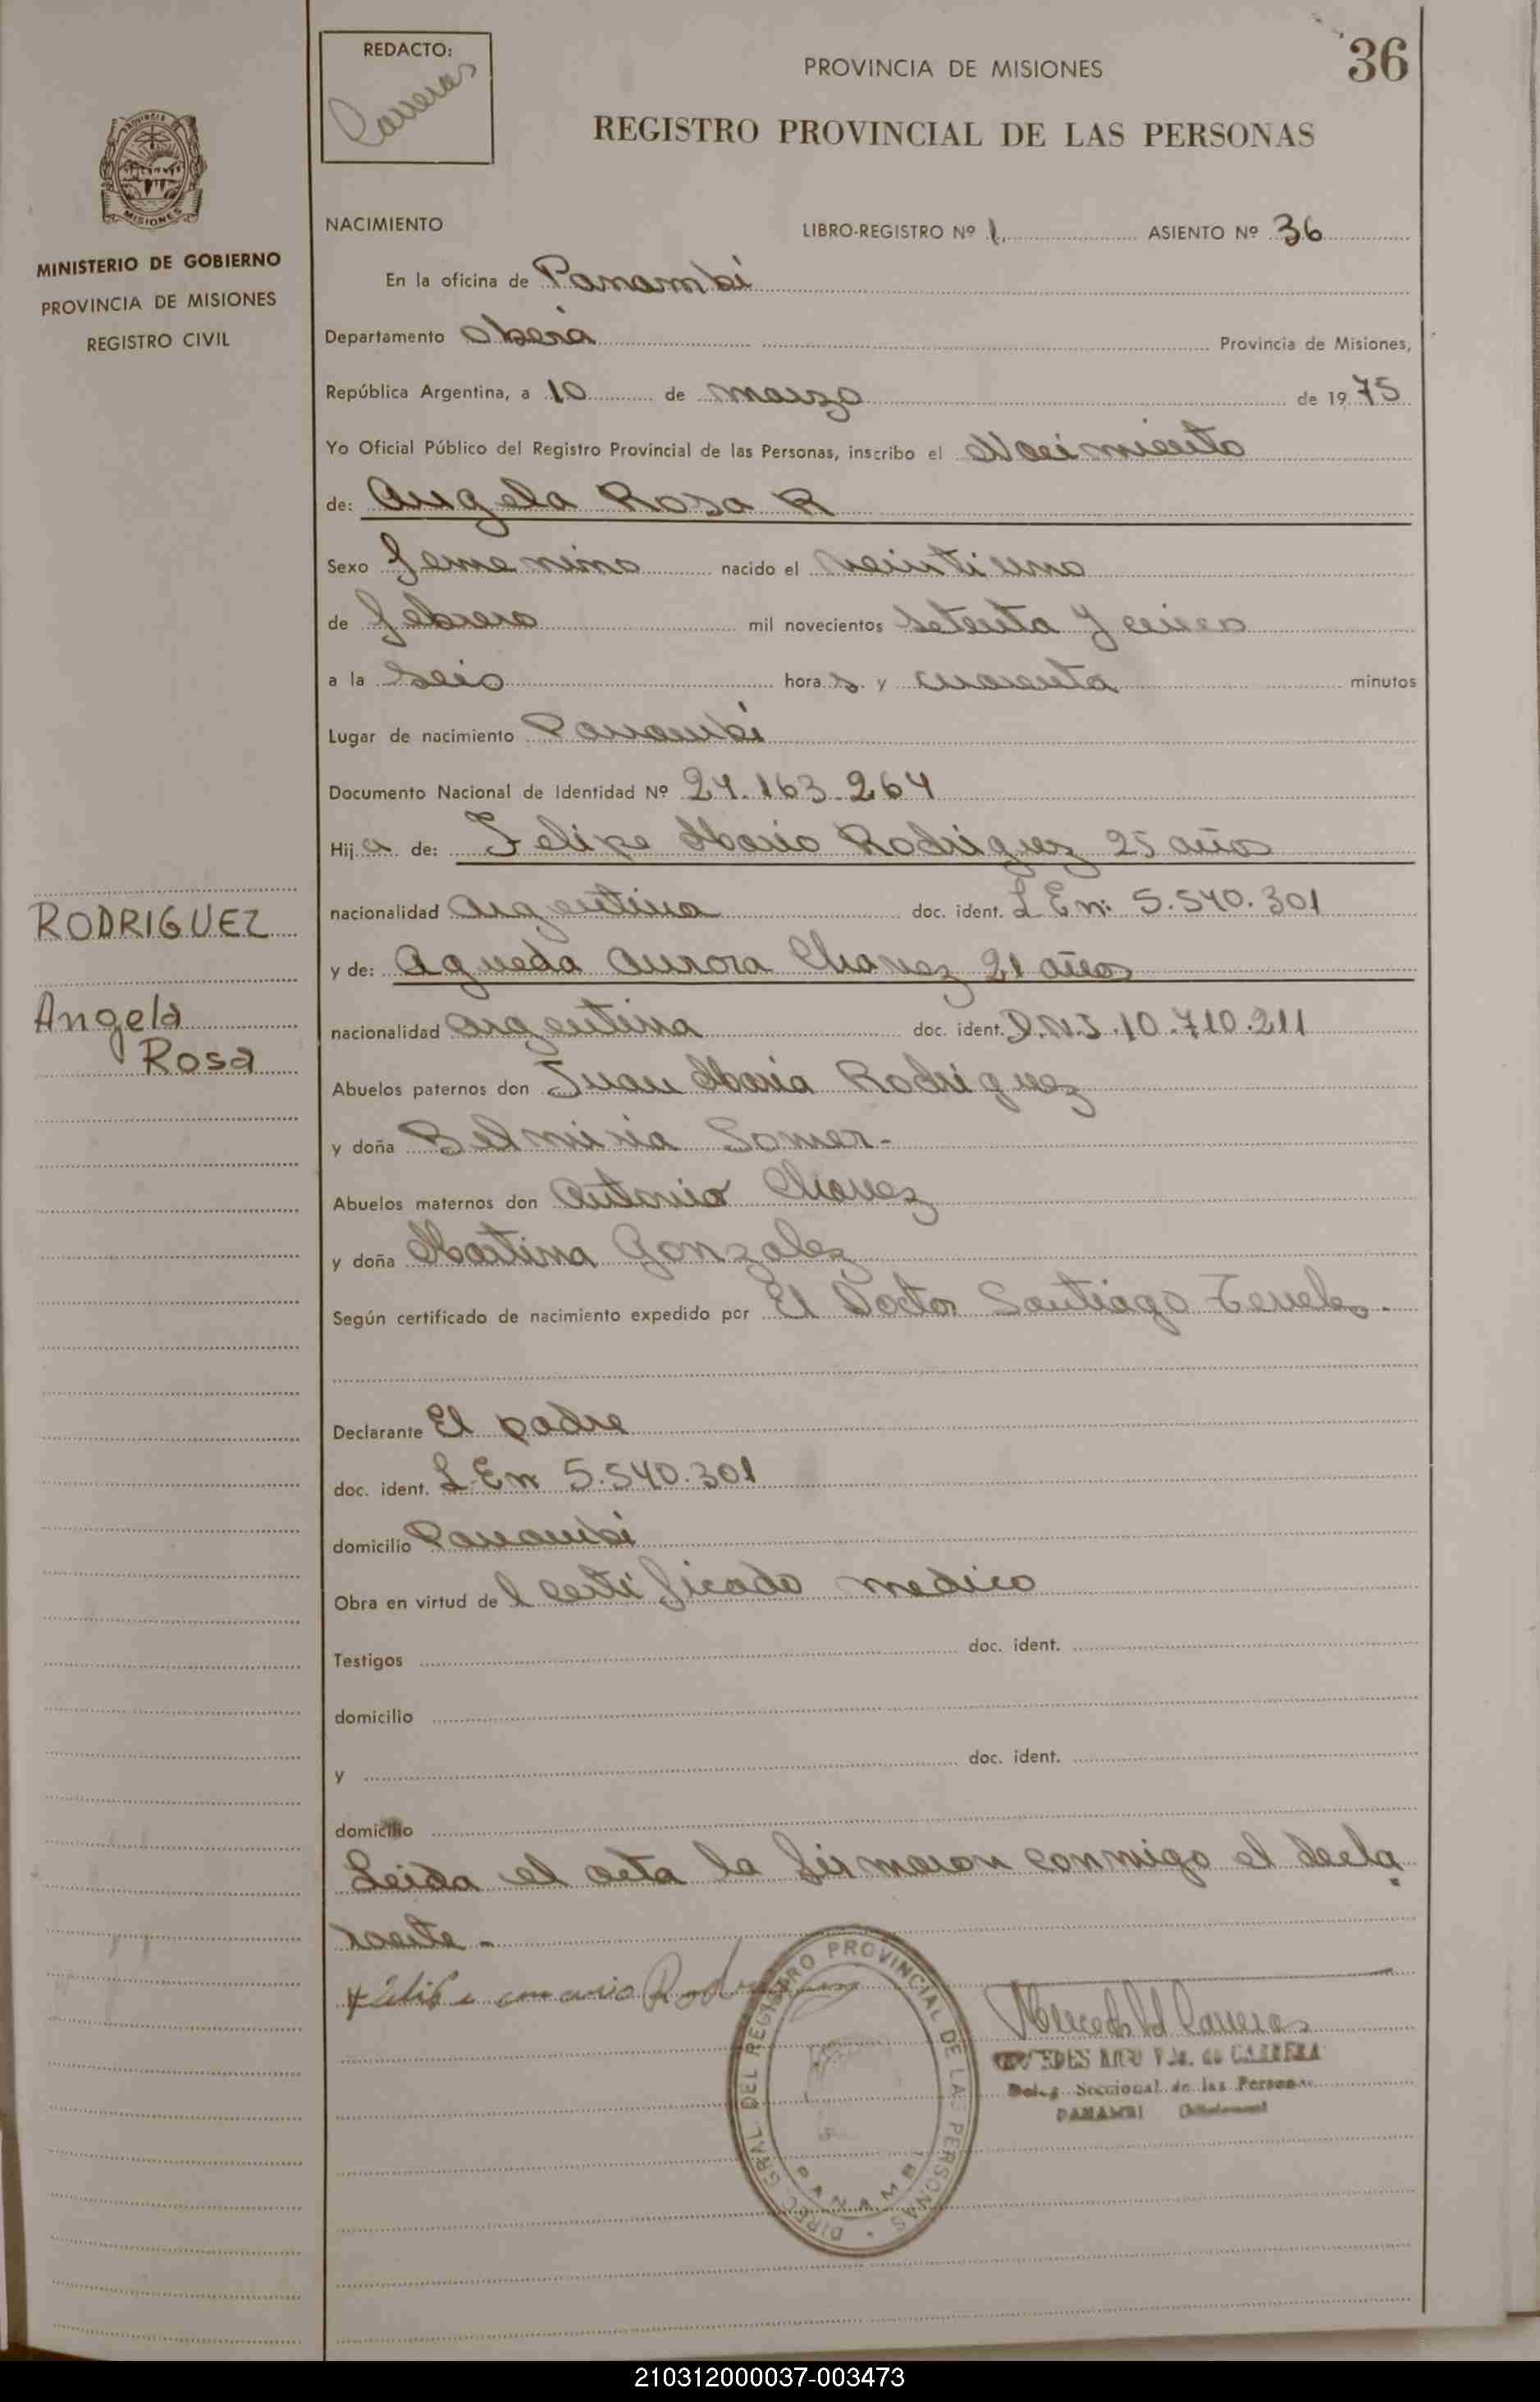 REDACTO:
Carreras
PROVINCIA DE MISIONES
36
REGISTRO PROVINCIAL DE LAS PERSONAS
PROVINCIA DE
MISIONES
MINISTERIO DE GOBIERNO
PROVINCIA DE MISIONES
REGISTRO CIVIL
RODRIGUEZ
Angela
Rosa
NACIMIENTO
LIBRO-REGISTRO Nº 1 ASIENTO Nº 36
En la oficina de Panambi
Departamento Oberá Provincia de Misiones,
República Argentina, a 10 de marzo de 1975
Yo Oficial Público del Registro Provincial de las Personas, inscribo el Nacimiento
de: Angela Rosa R
Sexo femenino nacido el veintiuno
de febrero mil novecientos setenta y cinco
a la seis horas y cuarenta minutos
Lugar de nacimiento Panambi
Documento Nacional de Identidad Nº 24.163.264
Hija de: Felipe Mario Rodriguez 25 años
nacionalidad argentina doc. ident. L.E.n: 5.540.301
y de: Agueda Aurora Chavez 21 años
nacionalidad argentina doc. ident. D.N.I. 10.710.211
Abuelos paternos don Juan Maria Rodriguez
y doña Belmiria Somer-
Abuelos maternos don Antonio Chavez
y doña Martina Gonzalez
Según certificado de nacimiento expedido por El Doctor Santiago
Declarante El padre
doc. ident. L.E.n 5.540.301
domicilio Panambi
Obra en virtud del certificado medico
Testigos doc. ident.
domicilio
y doc. ident.
domicilio
Leida el acta la firmaron conmigo el decla
rante -
DIREC. GRAL. DEL REGISTRO PROVINCIAL DE LAS PERSONAS
PANAMBI
Deleg. Seccional de las Personas
PANAMBI (Misiones)
210312000037-003473